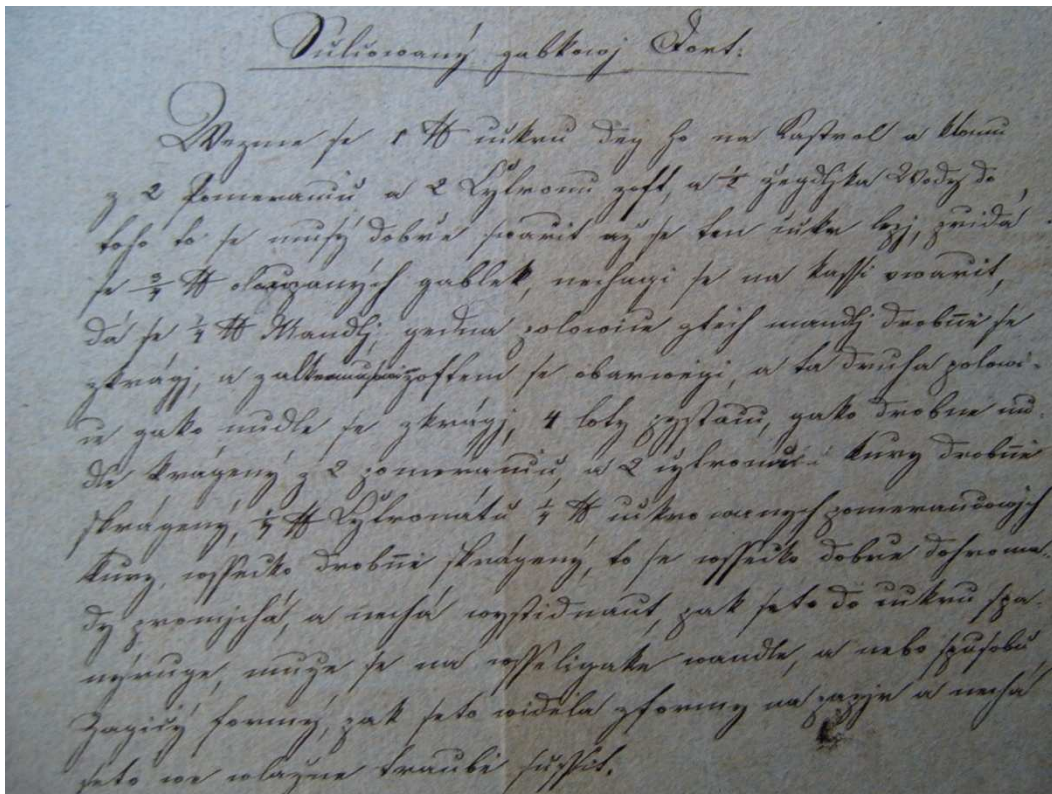 Sulcowaný gablkowj Dort:
Wezme se 1 ℔ cukru deg ho na Kastrol a k tomu
z 2 Pomerancŭ a 2 Cytronu zoft, a ½ žegdljka Wody do
toho to se musý dobře swarit až se ten cukr legj, přidá
se ¾ ℔ gablek, nechagi se na kassi swarit,
dá se ¼ ℔ Mandlj, gedna polowice ztěch mandlj drobně se
zkrágj, a zoftem se obarwegi, a ta druha polowi-
ce gako nudle se zkrágj, 4 loty pystacu, gako drobné nu-
dle krágený z 2 pomerancŭ, a 2 cytronu kury drobně
skrágený, ¼ ℔ Cytronátu ¼ ℔ cukrowaných pomerancowých
kury, wssecko drobně skrágený, to se wssecko dobře dohroma-
dy promjchá, a nechá wystidnaut, pak se to do cukru
muže se na wsseligaké wandle, a nebo spŭsobu
formý, pak se to widělá zformy na papjr a nechá
se to we wlažne traubě sussit.